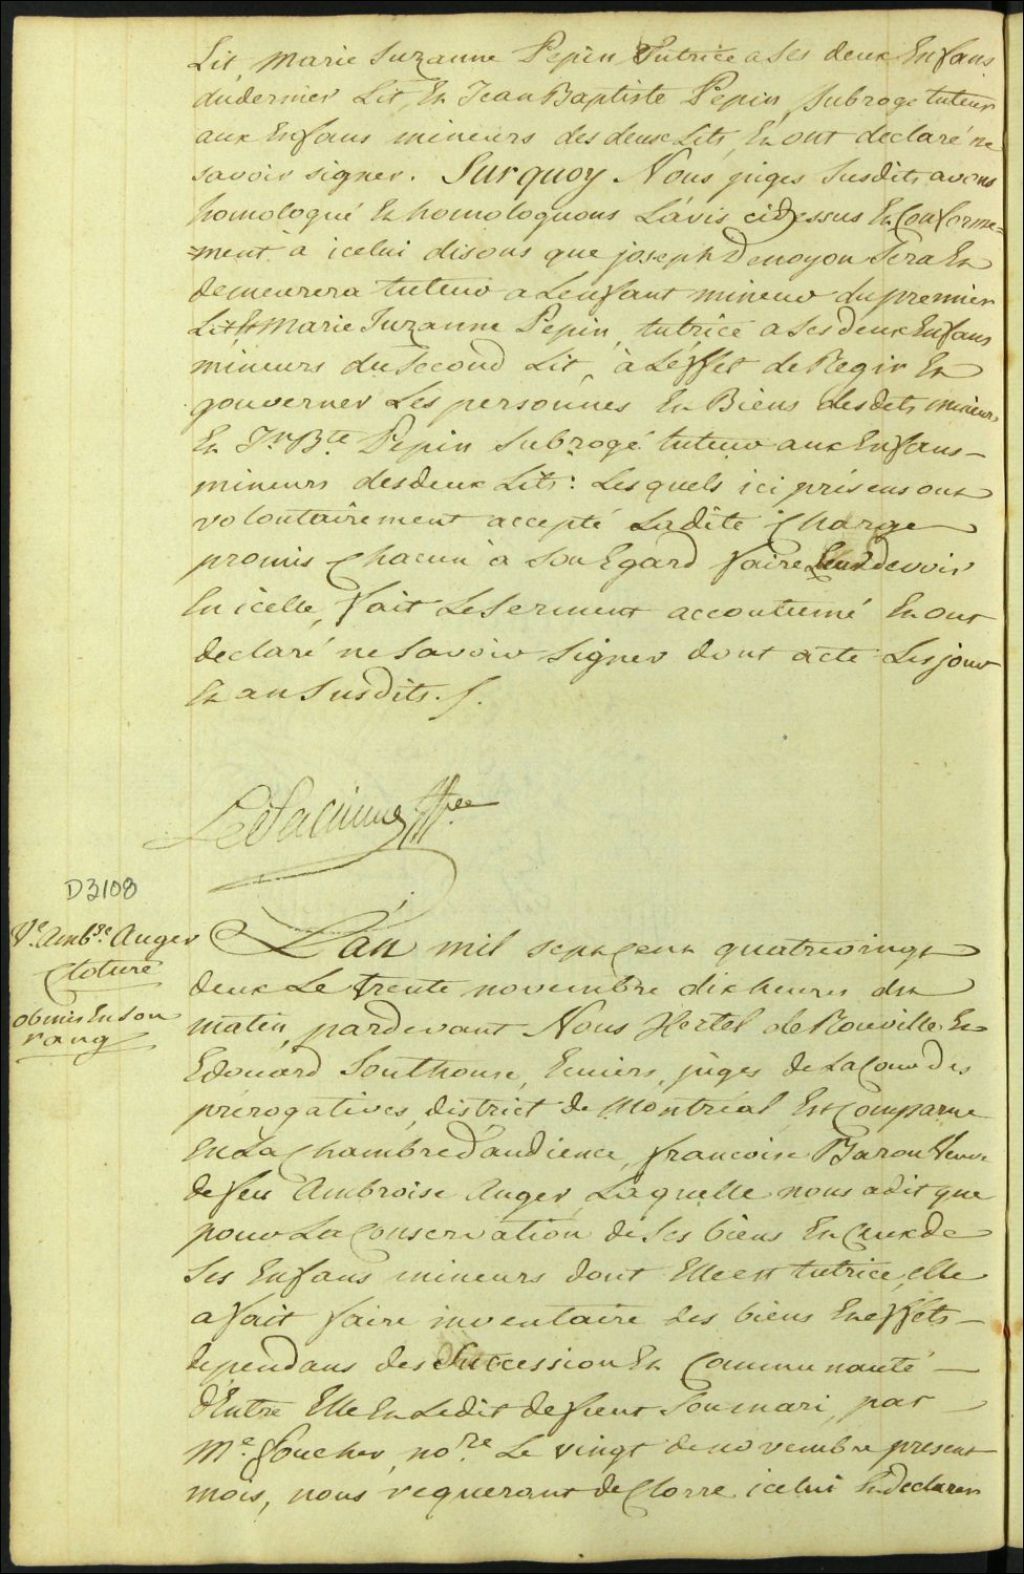 Lit, Marie Suzanne Pepin Tutrice a Ses deux Enfans
dudernier Lit, Et Jean Baptiste Pepin, Subrogé tuteur
aux Enfans mineurs des deux Lits, Et ont declaré ne
savoir signer. Surquoy Nous juges Susdits avons
homologué Et homologuons L'avis cidessus Et Conforme=
=ment à icelui disons que joseph Denoyon Sera Et
demeurera tuteur a L'enfant mineur du premier
Lit Et Marie Suzanne Pepin, tutrice a Ses deux Enfans
mineurs du Second Lit, à L'effet de Regir Et
gouverner Les personnes Et Biens desdits mineurs
Et Jn Bte Pepin Subrogé tuteur aux Enfans-
mineurs des deux Lits: Lesquels ici présens ont
volontairement accepté Ladite Charge
promis Chacun à Son Egard faire Leur devoir
En icelle, fait Le Serment accoutumé Et ont
declaré ne Savoir Signer dont acte Les jour
Et an Susdits./.
D3108
Ve. Ambse. Auger
Cloture
obmis En Son
rang
L'an mil sept Cent quatrevingt
deux Le trente novembre dix heures du
matin, pardevant Nous Hertel de Rouville Et
Edouard Southouse, Ecuiers, juges de La Cour des
prerogatives, district de Montréal Est Comparue
En La Chambre d'audience, francoise Baron Veuve
de feu Ambroise Auger, Laquelle nous a dit que
pour La Conservation de Ses biens Et Ceux de
Ses Enfans mineurs dont Elle est tutrice, elle
a fait faire inventaire des biens Et effets-
dependans des Succession Et Communauté-
d'Entre Elle Et Ledit defunt Son mari, par
Me. Foucher, nore. Le vingt de novembre present
mois, nous requerant de Clorre icelui Et declarer